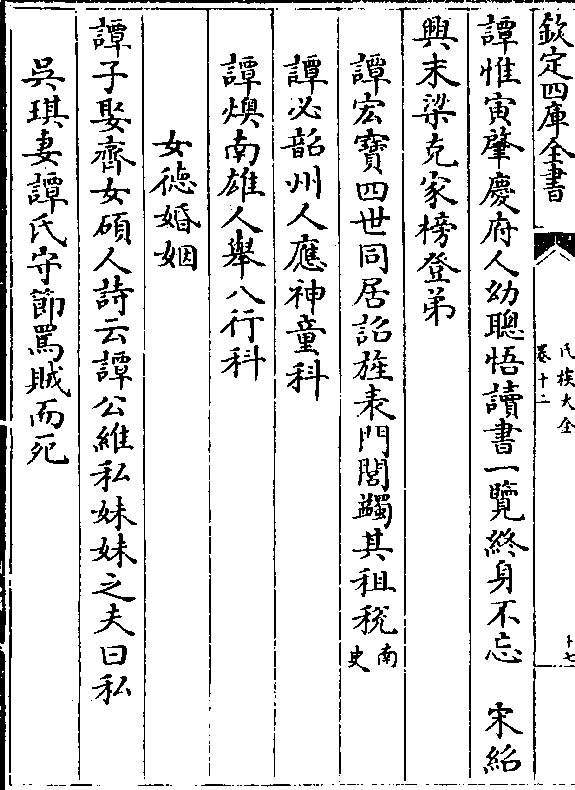 欽定四庫全書
氏族大全
卷十二
十七
譚惟寅肇慶府人幼聰悟讀書一覽終身不忘　宋紹
興末梁克家榜登弟
譚宏寶四世同居詔旌表門閭蠲其租稅南史
譚必韶州人應神童科
譚煥南雄人舉八行科
女徳婚姻
譚子娶齊女碩人詩云譚公維私妹妹之夫曰私
吳琪妻譚氏守節罵賊而死